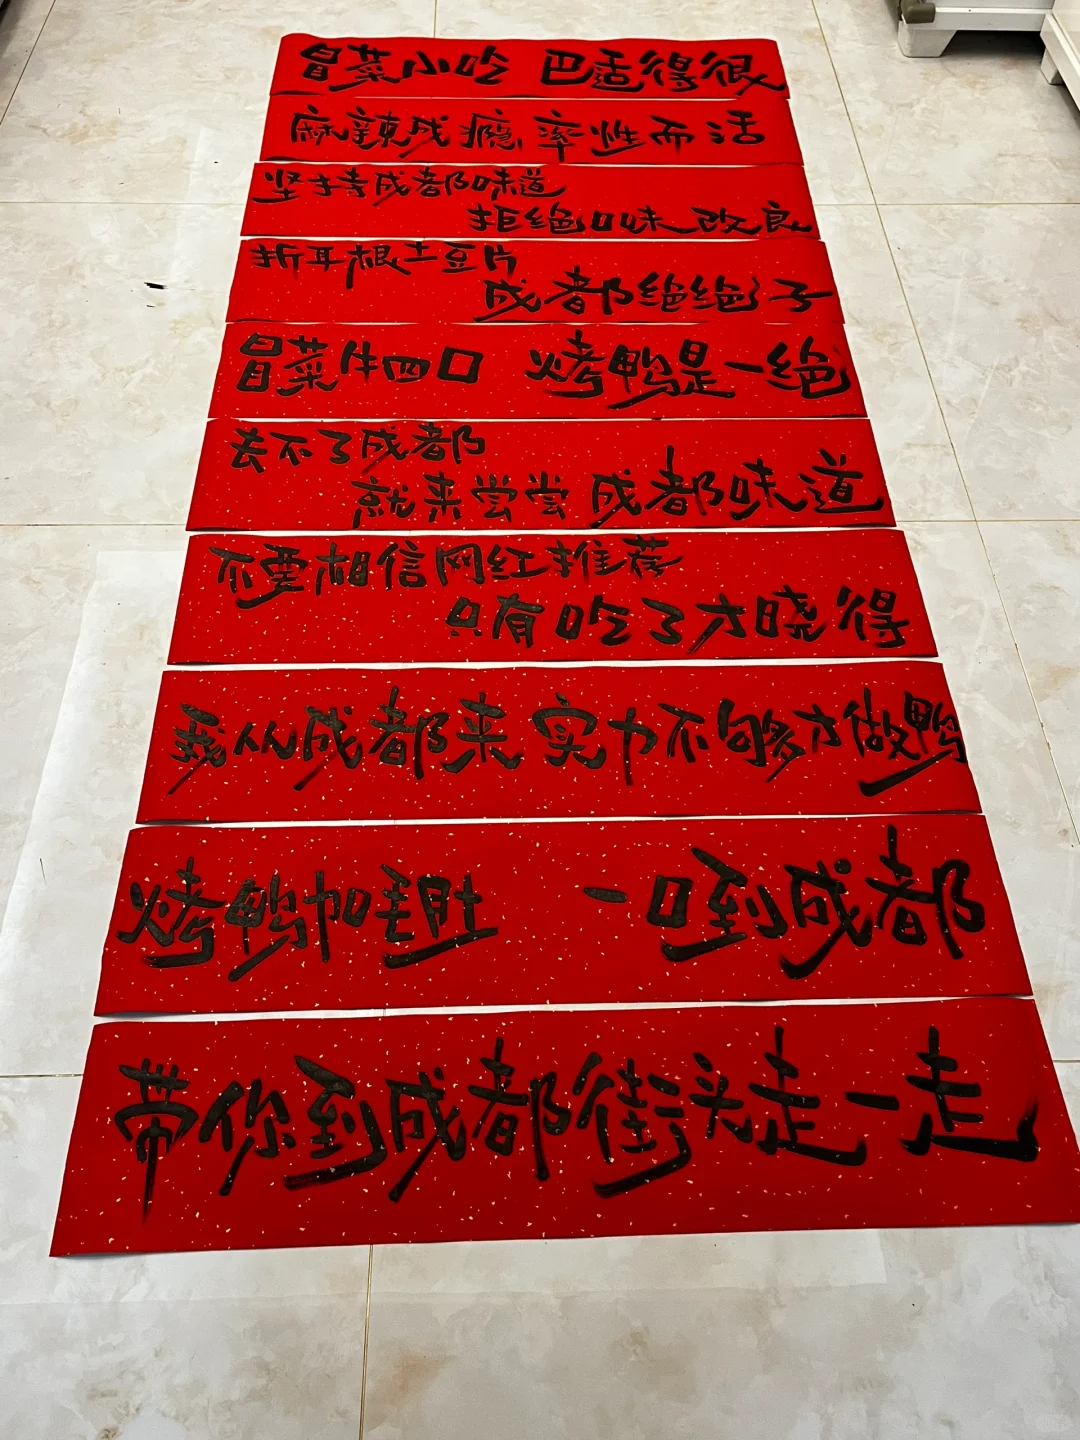 冒菜小吃 巴适得很
麻辣成瘾 率性而活
坚持成都味道
拒绝口味改良
折耳根土豆片
成都绝绝子
冒菜牛四口 烤鸭是一绝
去不了成都
就来尝尝成都味道
不要相信网红推荐
只有吃了才晓得
我从成都来 实力不够才做鸭
烤鸭加毛肚 一口到成都
带你到成都街头走一走